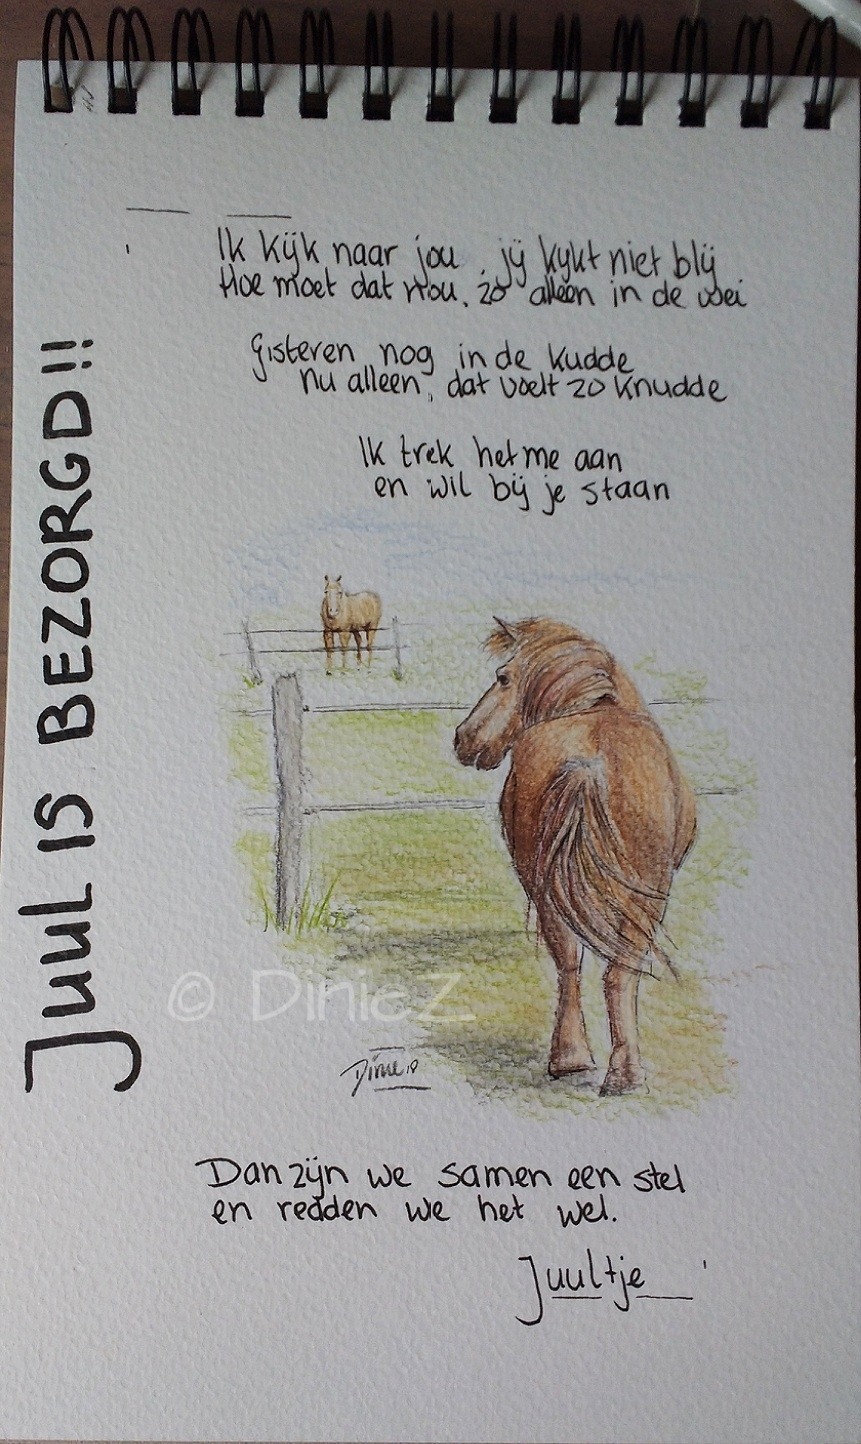 JUUL IS BEZORGD!!
Ik kijk naar jou, jij kykt niet blij
Hoe moet dat nou, zo alleen in de wei
Gisteren nog in de kudde
nu alleen, dat voelt zo knudde
Ik trek het me aan
en wil bij je staan
© DinieZ
Dinie 18
Dan zijn we samen een stel
en redden we het wel.
Juultje